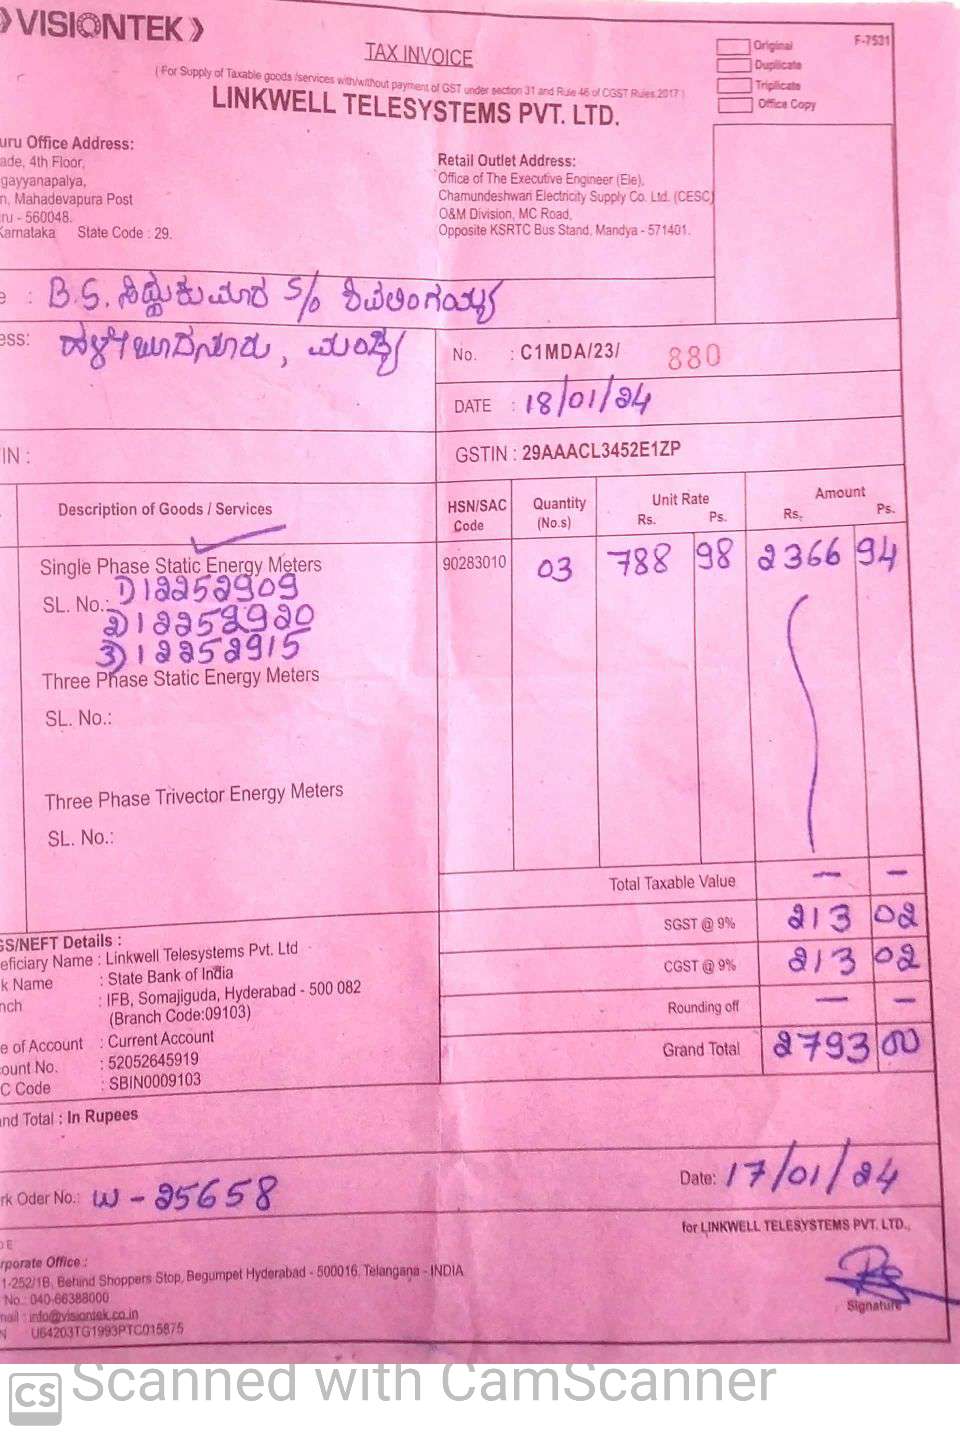 VISIONTEK
TAX INVOICE
Original
F-7531
Duplicate
Triplicate
Office Copy
( For Supply of Taxable goods /services with/without payment of GST under section 31 and Rule 46 of CGST Rules 2017 )
LINKWELL TELESYSTEMS PVT. LTD.
uru Office Address:
ade, 4th Floor,
gayyanapalya,
n, Mahadevapura Post
ru - 560048.
Karnataka State Code : 29.
Retail Outlet Address:
Office of The Executive Engineer (Ele),
Chamundeshwari Electricity Supply Co. Ltd. (CESC)
O&M Division, MC Road,
Opposite KSRTC Bus Stand, Mandya - 571401.
e : B.S. ಸಿದ್ದುಕುಮಾರ S/o ಶಿವಲಿಂಗಯ್ಯ
ess: ಹಳೇಬೂದನೂರು, ಮಂಡ್ಯ
No. : C1MDA/23/ 880
DATE : 18/01/24
IN :
GSTIN : 29AAACL3452E1ZP
Description of Goods / Services
HSN/SAC Code
Quantity (No.s)
Unit Rate
Rs. Ps.
Amount
Rs. Ps.
Single Phase Static Energy Meters 90283010 03 788 98 2366 94
SL. No.: 1) 12252909
2) 12252920
3) 12252915
Three Phase Static Energy Meters
SL. No.:
Three Phase Trivector Energy Meters
SL. No.:
Total Taxable Value — —
SGST @ 9% 213 02
CGST @ 9% 213 02
Rounding off — —
Grand Total 2793 00
GS/NEFT Details :
eficiary Name : Linkwell Telesystems Pvt. Ltd
k Name : State Bank of India
nch : IFB, Somajiguda, Hyderabad - 500 082
(Branch Code:09103)
e of Account : Current Account
ount No. : 52052645919
C Code : SBIN0009103
and Total : In Rupees
rk Oder No.: W - 25658
Date: 17/01/24
for LINKWELL TELESYSTEMS PVT. LTD.,
rporate Office :
1-252/1B, Behind Shoppers Stop, Begumpet Hyderabad - 500016. Telangana - INDIA
No. : 040-66388000
mail : info@visiontek.co.in
N U64203TG1993PTC015875
Signature
CS Scanned with CamScanner